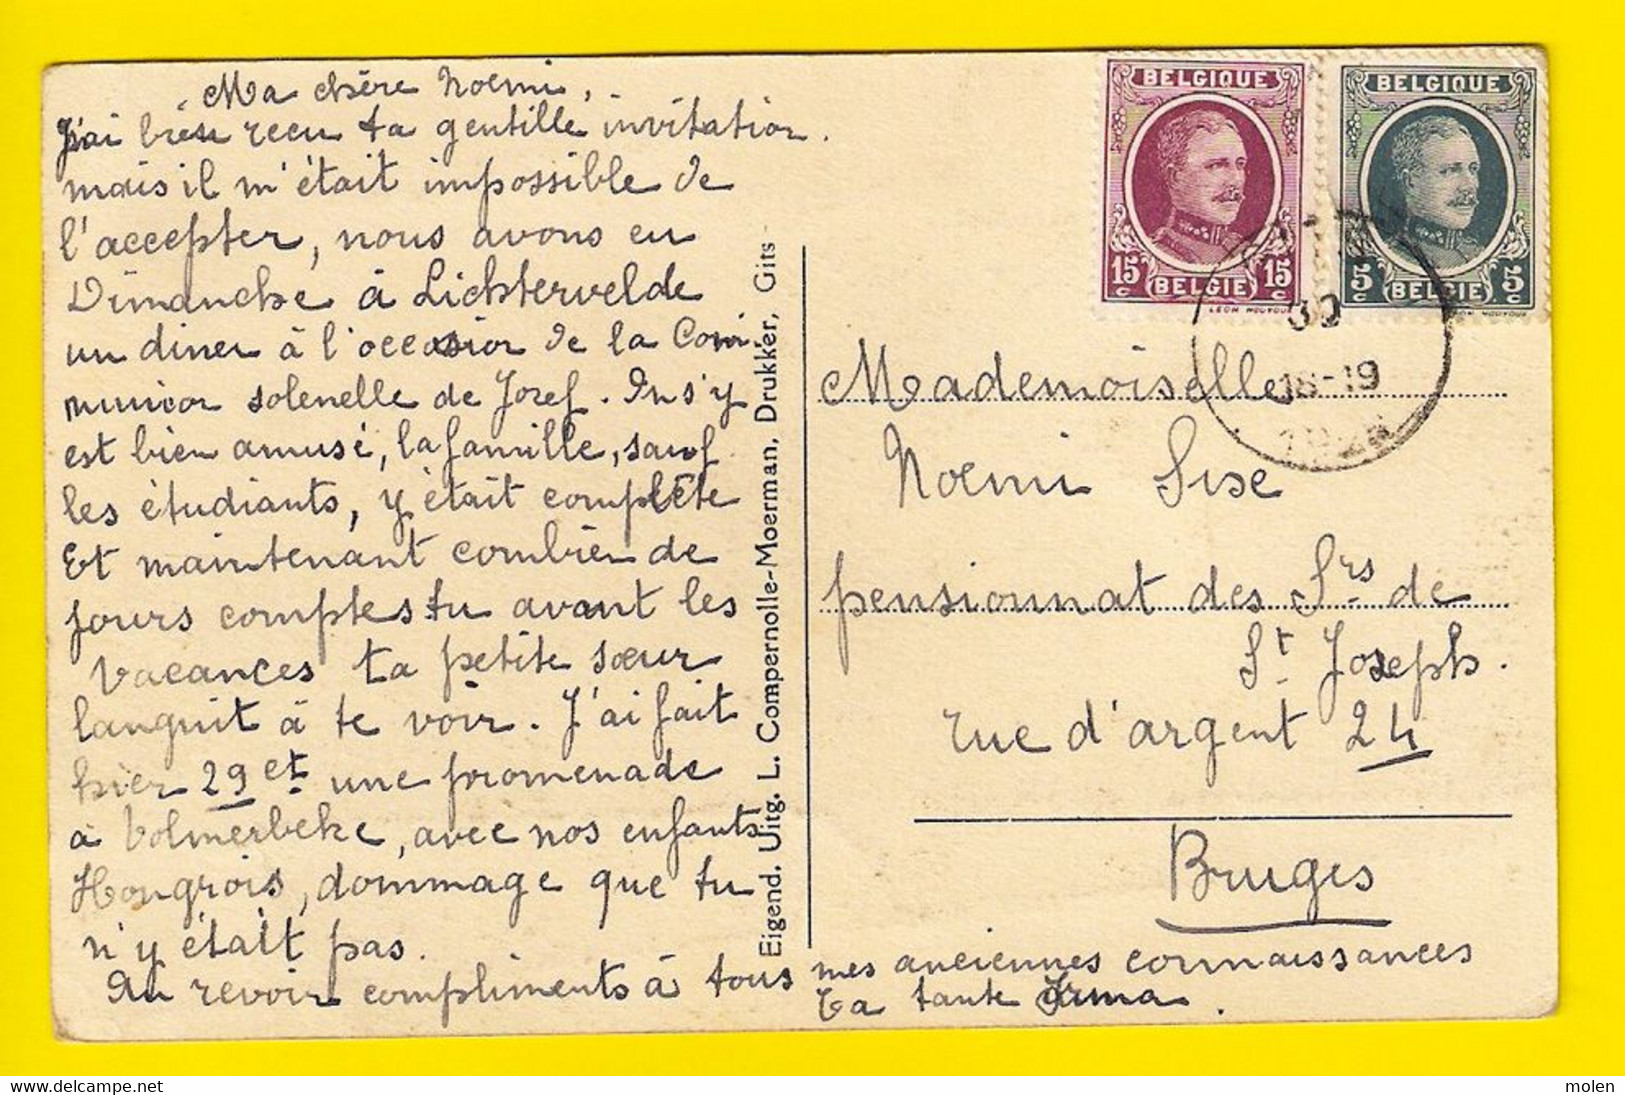 Ma chère Noemi,
J'ai bien reçu ta gentille invitation.
mais il m'était impossible de
l'accepter, nous avons eu
Dimanche à Lichtervelde
un diner à l'occasion de la Com
munion solenelle de Jozef. On s'y
est bien amusé, la famille, sauf
les étudiants, y était complète
Et maintenant combien de
jours comptes tu avant les
vacances ta petite sœur
languit à te voir. J'ai fait
hier 29 et une promenade
à Volmerbeke, avec nos enfants
Hongrois, dommage que tu
n'y était pas.
Au revoir compliments à tous mes anciennes connaissances
ta tante Irma.
Eigend. Uitg. L. Compernolle-Moerman, Drukker, Gits
BELGIQUE
15 c 15 c
BELGIË
LEON HOUYOUX
BELGIQUE
5 c 5 c
BELGIË
LEON HOUYOUX
30
18-19
Mademoiselle
Noemi Sise
pensionnat des Srs de
St Joseph.
rue d'argent 24
Bruges
© delcampe.net
molen